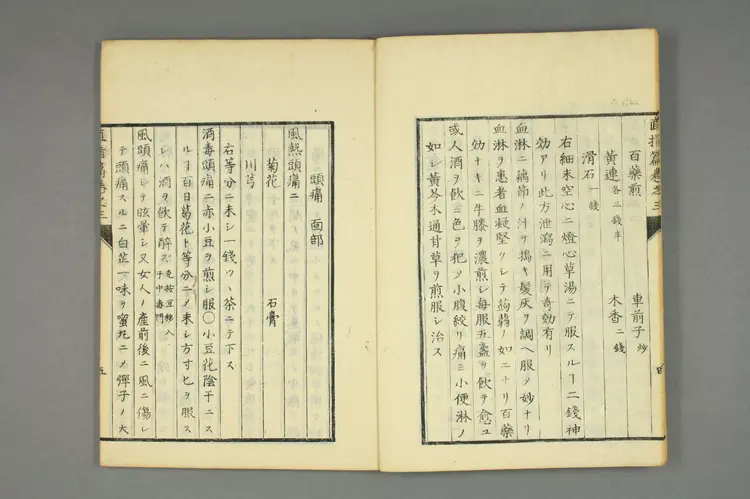 百藥煎　車前子炒
黄連各三錢半　木香二錢
滑石一錢
右細末空心ニ燈心草湯ニテ服スルヿ二錢神
効アリ此方泄瀉ニ用テ奇効有リ
血淋ニ藕節ノ汁ヲ搗キ髪灰ヲ調ヘ服メ妙ナリ
血淋ヲ患者血凝堅クシテ蒟蒻ノ如ニナリ百藥
効ナキニ牛膝ヲ濃煎シ毎服五盞ヲ飲テ愈ユ
或人酒ヲ飲ミ色ヲ犯メ小腹絞リ痛ミ小便淋ノ
如シ黄芩木通甘草ヲ煎服シ治ス
四
頭痛　面部
風熱頭痛ニ
菊花　石膏
川芎
右等分ニ末シ一錢ツヽ茶ニテ下ス
酒毒頭痛ニ赤小豆ヲ煎シ服〇小豆花陰干ニス
ルヿ百日葛花ト等分ニメ末シ方寸匕ヲ服ス
レハ酒ヲ飲テ醉ズ
風頭痛シテ眩暈シ又女人ノ産前後ニ風ニ傷レ
テ頭痛スルニ白芷一味ヲ蜜丸ニメ彈子ノ大
五